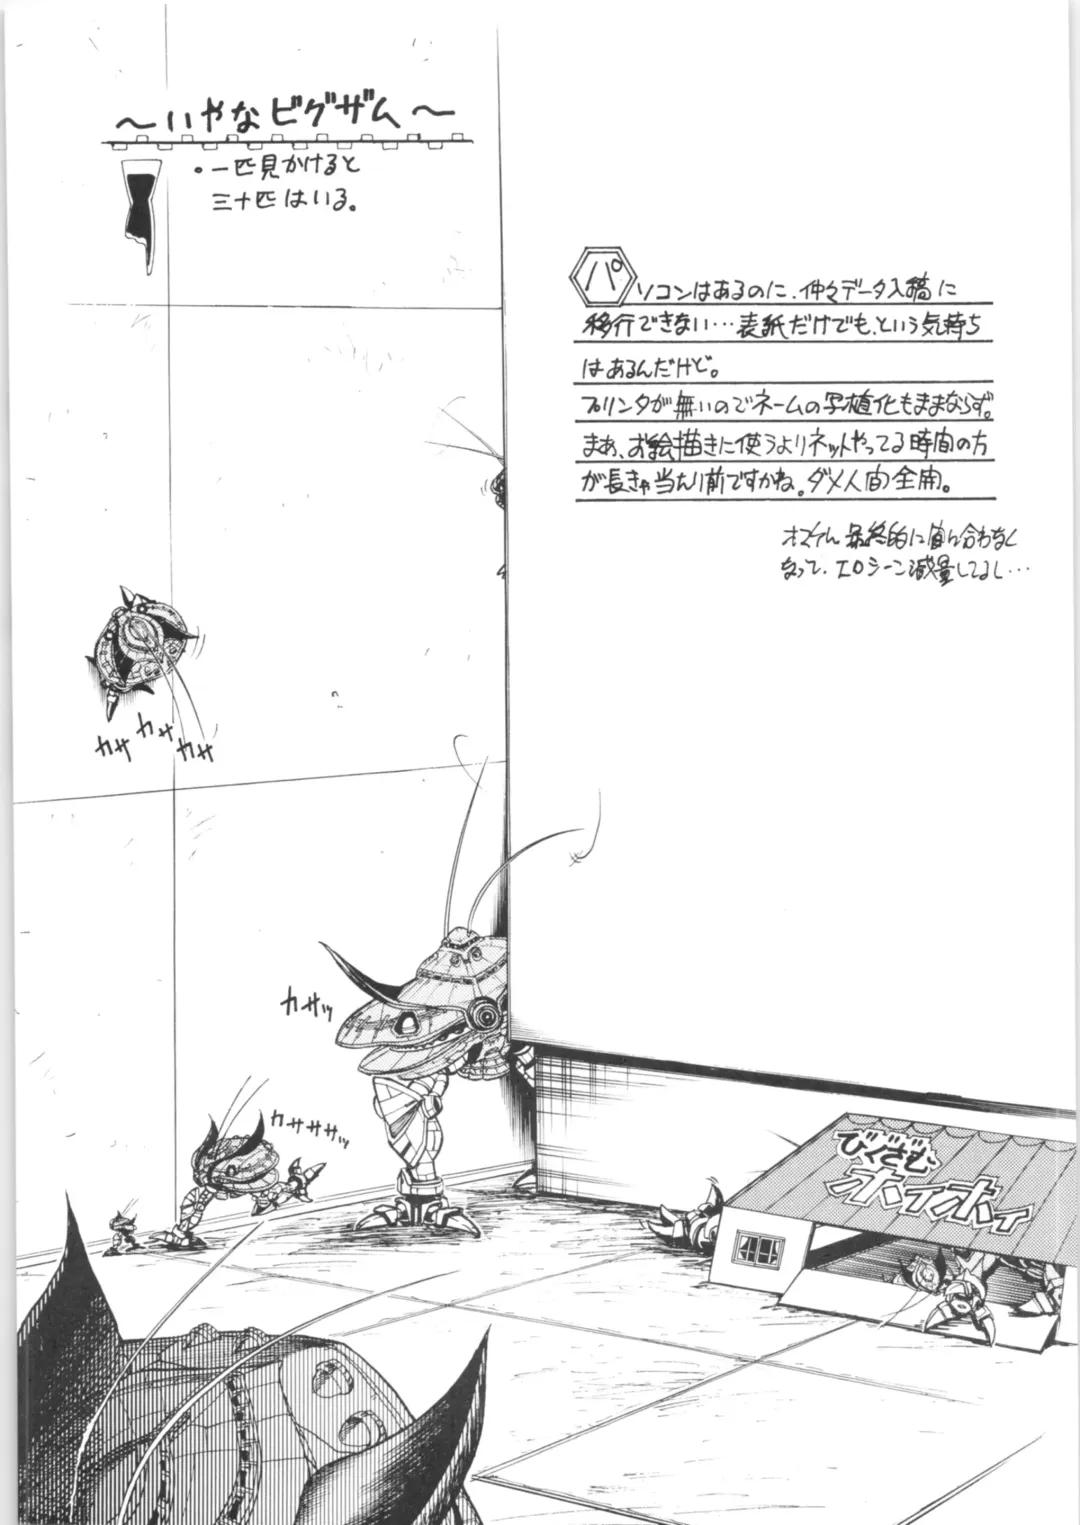 ～いやなビグザム～
・一匹見かけると
三十匹はいる。
パソコンはあるのに、仲々データ入稿に
移行できない…表紙だけでも、という気持ち
はあるんだけど。
プリンタが無いのでネームの写植化もままならず。
まあ、お絵描きに使うよりネットやってる時間の方
が長きゃ当たり前ですかね。ダメ人間全開。
最終的に間に合わなく
なって、エロシーン減量してるし…
カサ
カサ
カサ
カサッ
カサササッ
びぐざむ
ホイホイ